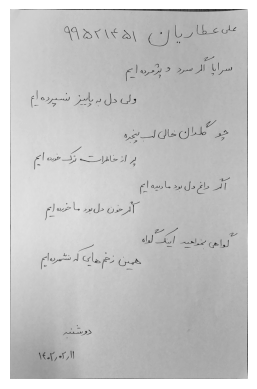 علی عطاریان ۹۹۵۲۱۴۵۱
سراپا اگر سرد و پژمرده ایم
ولی دل به پاییز نسپرده ایم
چو گلدان خالی لب پنجره
پر از خاطرات ترک خورده ایم
اگر داغ دل بود ما دیده ایم
اگر خون دل بود ما خورده ایم
گواهی بخواهید اینک گواه
همین زخم‌هایی که نشمرده ایم
دوشنبه
۱۴۰۲/۰۲/۱۱